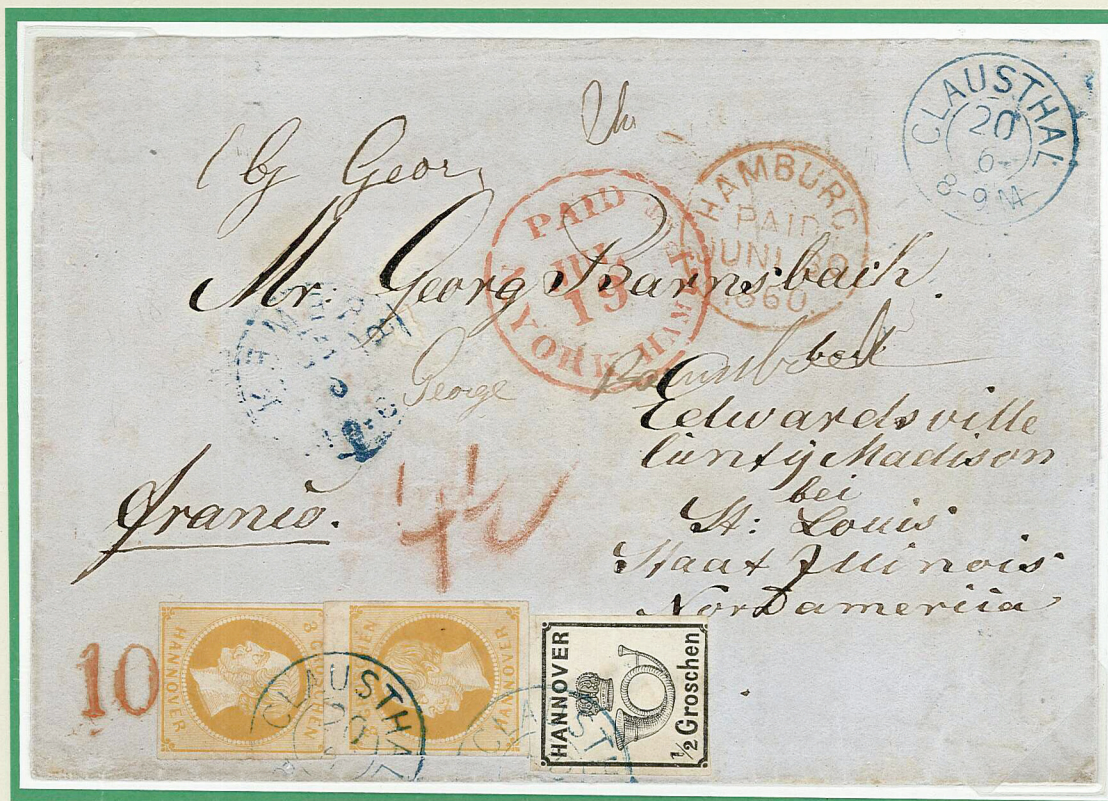 CLAUSTHAL
20
6
8-9 M
HAMBURG
PAID
JUNI 30
1860
PAID
JUL
19
N YORK HAM
Mr. Georg Barnsbach.
George
Edwardsville
Cünty Madison
bei
St: Louis
Staat Illinois
Nordamerica
franco.
10
HANNOVER
3 GROSCHEN
HANNOVER
HANNOVER
1/2 Groschen
CLAUSTHAL
20
CLAUSTHAL